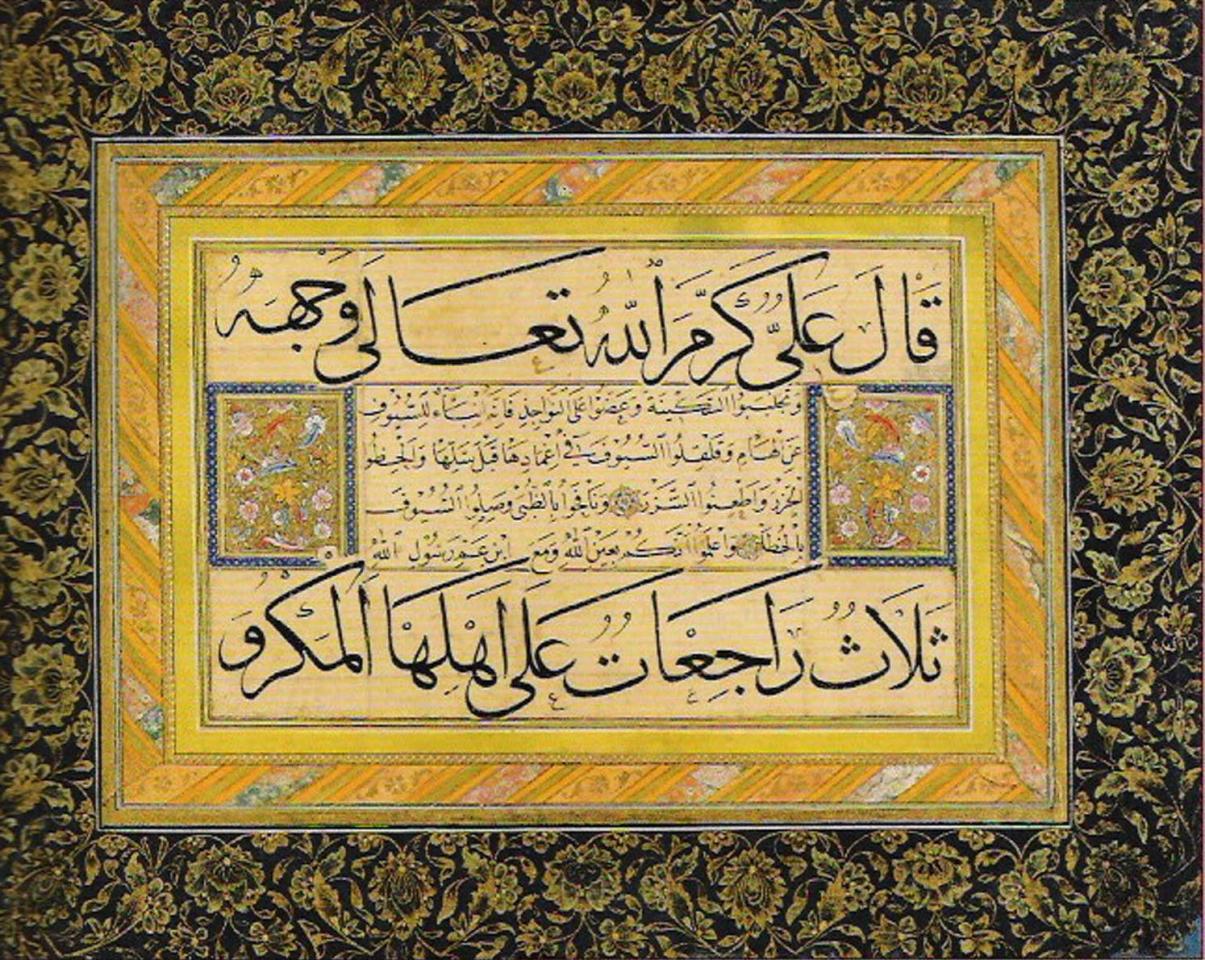 قَالَ عَلِيٌّ كَرَّمَ ٱللّٰهُ تَعَالَى وَجْهَهُ
وتجلببوا السكينة وعضوا على النواجذ فانه انباء للسيوف
عن الهام وقلقلوا السيوف في اغمادها قبل سلها والحظوا
الخزر واطعنوا الشزر ونافحوا بالظبى وصلوا السيوف
بالخطا واعلموا انكم بعين الله ومع ابن عم رسول الله
ثَلَاثٌ رَاجِعَاتٌ عَلَى اَهْلِهَا اَلْمَكْرُ وَ